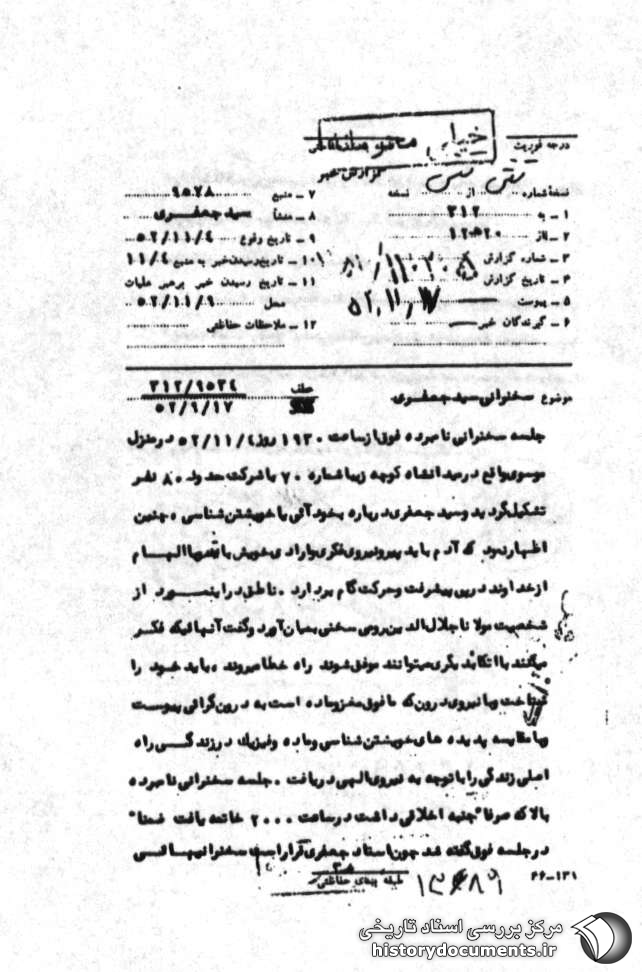 خیلی محرمانه
درجه فوریت
گزارش خبر
نسخه شماره از نسخه
۱ ـ به ۳۱۲
۲ ـ از ۲۰ه۱۲
۳ ـ شماره گزارش
۴ ـ تاریخ گزارش ۵۲/۱۱/۱۷
۵ ـ پیوست
۶ ـ گیرندگان خبر
۷ ـ منبع ۹۵۷۸
۸ ـ منشأ سید جعفری
۹ ـ تاریخ وقوع ۵۲/۱۱/۴
۱۰ ـ تاریخ رسیدن خبر به منبع ۱۱/۴
۱۱ ـ تاریخ رسیدن خبر برهبر عملیات
محل ۵۲/۱۱/۹
۱۲ ـ ملاحظات حفاظتی
موضوع سخنرانی سید جعفری
عطف ۳۱۲/۹۵۳۴
۵۲/۹/۱۷
جلسه سخنرانی نامبرده فوق از ساعت ۱۹۳۰ روز ۵۲/۱۱/۴ در منزل
موسوی واقع در میدانشاه کوچه زیبا شماره ۷۰ با شرکت حدود ۸۰ نفر
تشکیل گردید و سید جعفری درباره بخود آئی با خویشتن شناسی، چنین
اظهار نمود که آدم باید پیرو نیروی فکری و ارادی خویش با الهام
از خداوند در پی پیشرفت و حرکت گام بردارد. ناطق در اینمورد از
شخصیت مولانا جلال الدین رومی سخنی بمیان آورد و گفت آنهائیکه فکر
میکنند با اتکا بدیگری میتوانند موفق شوند راه خطا میروند، باید خود را
شناخت و با نیروی درون که مافوق مغز و ماده است به درون گرائی پیوست
و با مقایسه پدیده های خویشتن شناسی و ماده و فیزیک در زندگی راه
اصلی زندگی را با توجه به نیروی الهی دریافت. جلسه سخنرانی نامبرده
بالا که صرفا" جنبه اخلاقی داشت در ساعت ۲۰۰۰ خاتمه یافت ضمنا"
در جلسه فوق گفته شد چون استاد جعفری قرار است سخنرانیهائی
۶۶-۱۳۱
طبقه بندی حفاظتی
مرکز بررسی اسناد تاریخی
historydocuments.ir